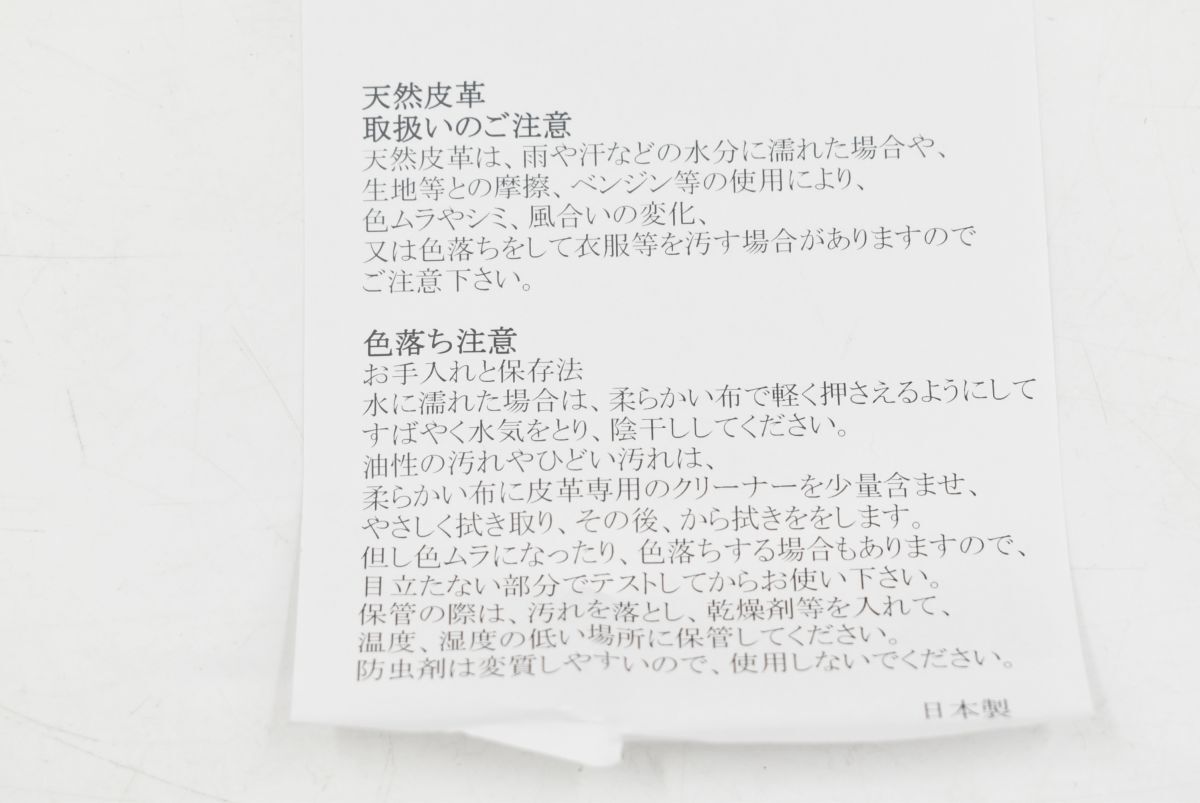 天然皮革
取扱いのご注意
天然皮革は、雨や汗などの水分に濡れた場合や、
生地等との摩擦、ベンジン等の使用により、
色ムラやシミ、風合いの変化、
又は色落ちをして衣服等を汚す場合がありますので
ご注意下さい。
色落ち注意
お手入れと保存法
水に濡れた場合は、柔らかい布で軽く押さえるようにして
すばやく水気をとり、陰干ししてください。
油性の汚れやひどい汚れは、
柔らかい布に皮革専用のクリーナーを少量含ませ、
やさしく拭き取り、その後、から拭きををします。
但し色ムラになったり、色落ちする場合もありますので、
目立たない部分でテストしてからお使い下さい。
保管の際は、汚れを落とし、乾燥剤等を入れて、
温度、湿度の低い場所に保管してください。
防虫剤は変質しやすいので、使用しないでください。
日本製